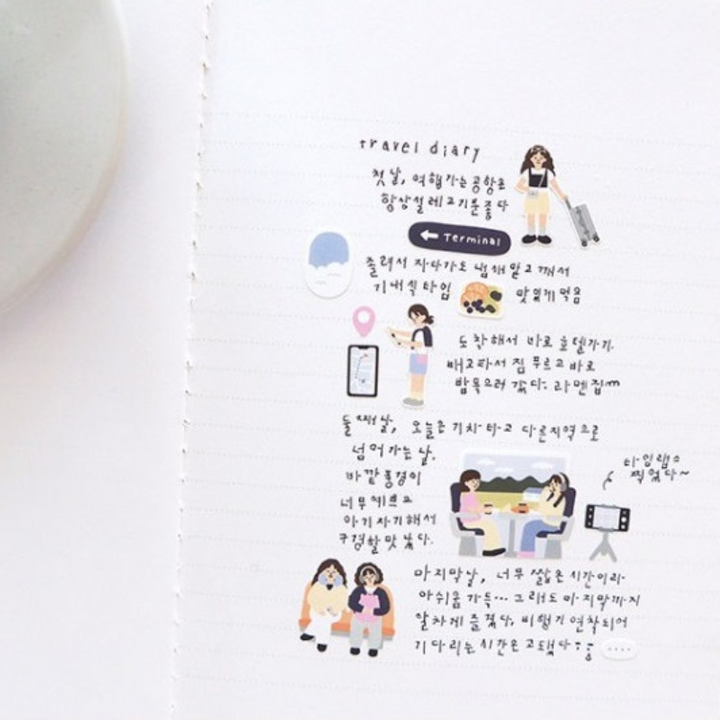 travel diary
첫날, 여행가는 공항은
항상 설레고 기분 좋다
← Terminal
졸려서 자다가도 냄새 맡고 깨서
기내식 타임 맛있게 먹음
도착해서 바로 호텔가기.
배고파서 짐 푸르고 바로
밥 먹으러 갔다: 라멘집
둘째날, 오늘은 기차타고 다른지역으로
넘어가는 날.
바깥 풍경이
너무 예쁘고
아기자기해서
구경할 맛 났다.
타임랩스
찍었다~
마지막날, 너무 짧은 시간이라
아쉬움 가득... 그래도 마지막까지
알차게 즐겼다. 비행기 연착되어
기다리는 시간은 고됐다;;
....